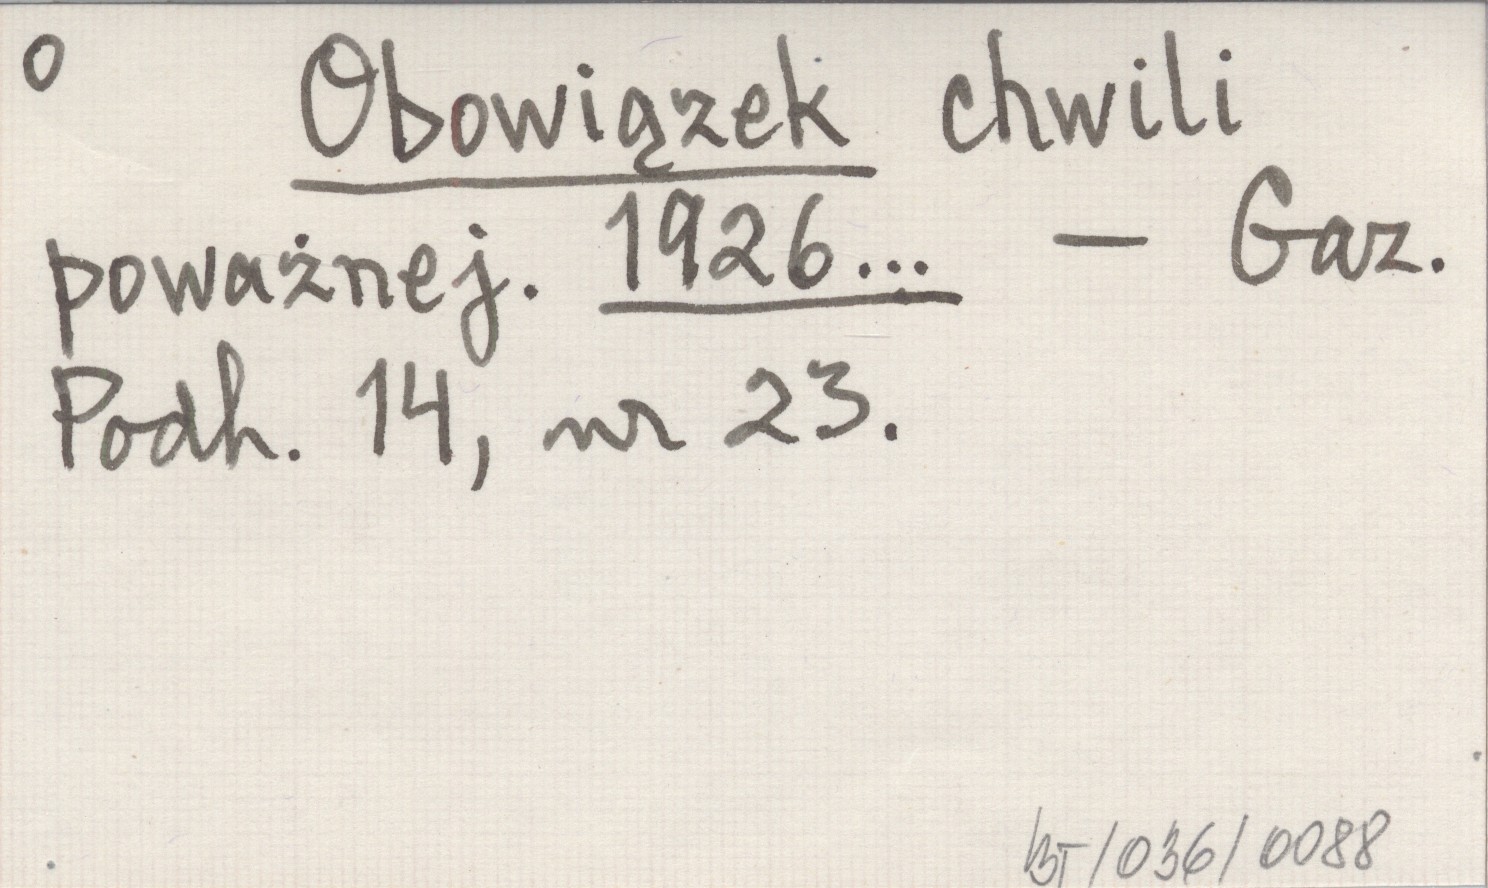 o Obowiązek chwili
poważnej. 1926... — Gaz.
Podh. 14, nr 23.
BT/036/0088